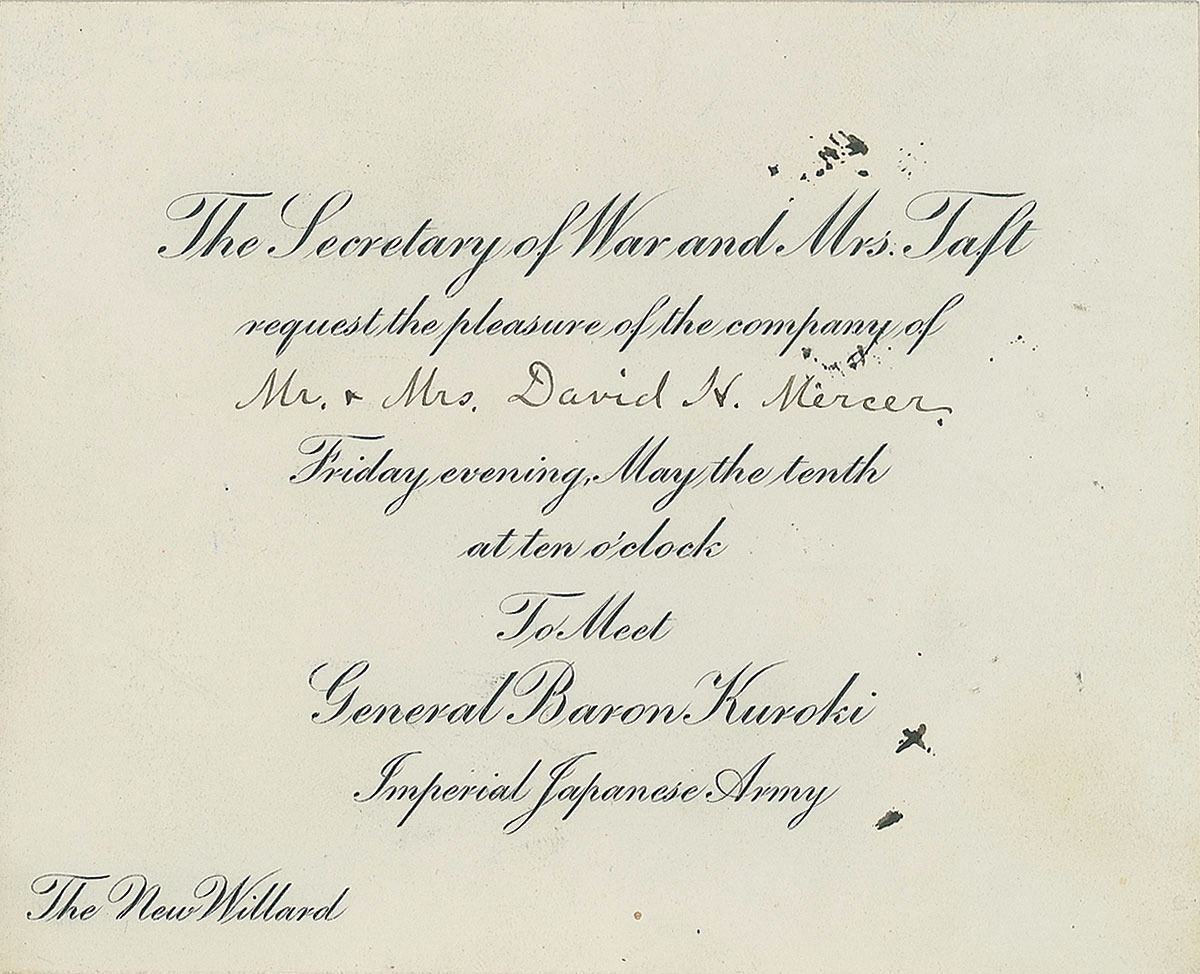 The Secretary of War and Mrs. Taft
request the pleasure of the company of
Mr. & Mrs. David H. Mercer.
Friday evening, May the tenth
at ten o'clock
To Meet
General Baron Kuroki
Imperial Japanese Army
The New Willard